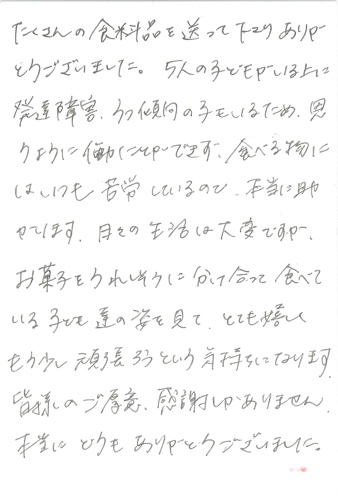 たくさんの食料品を送って下さりありが
とうございました。5人の子どもがいる上に
発達障害、うつ傾向の子もいるため、思
うように働くことができず、食べる物に
はいつも苦労しているので、本当に助
かってます。日々の生活は大変ですが、
お菓子をうれしそうに分け合って食べて
いる子ども達の姿を見て、とても嬉しく
もう少し頑張ろうという気持ちになります。
皆様のご厚意、感謝しかありません。
本当にどうもありがとうございました。